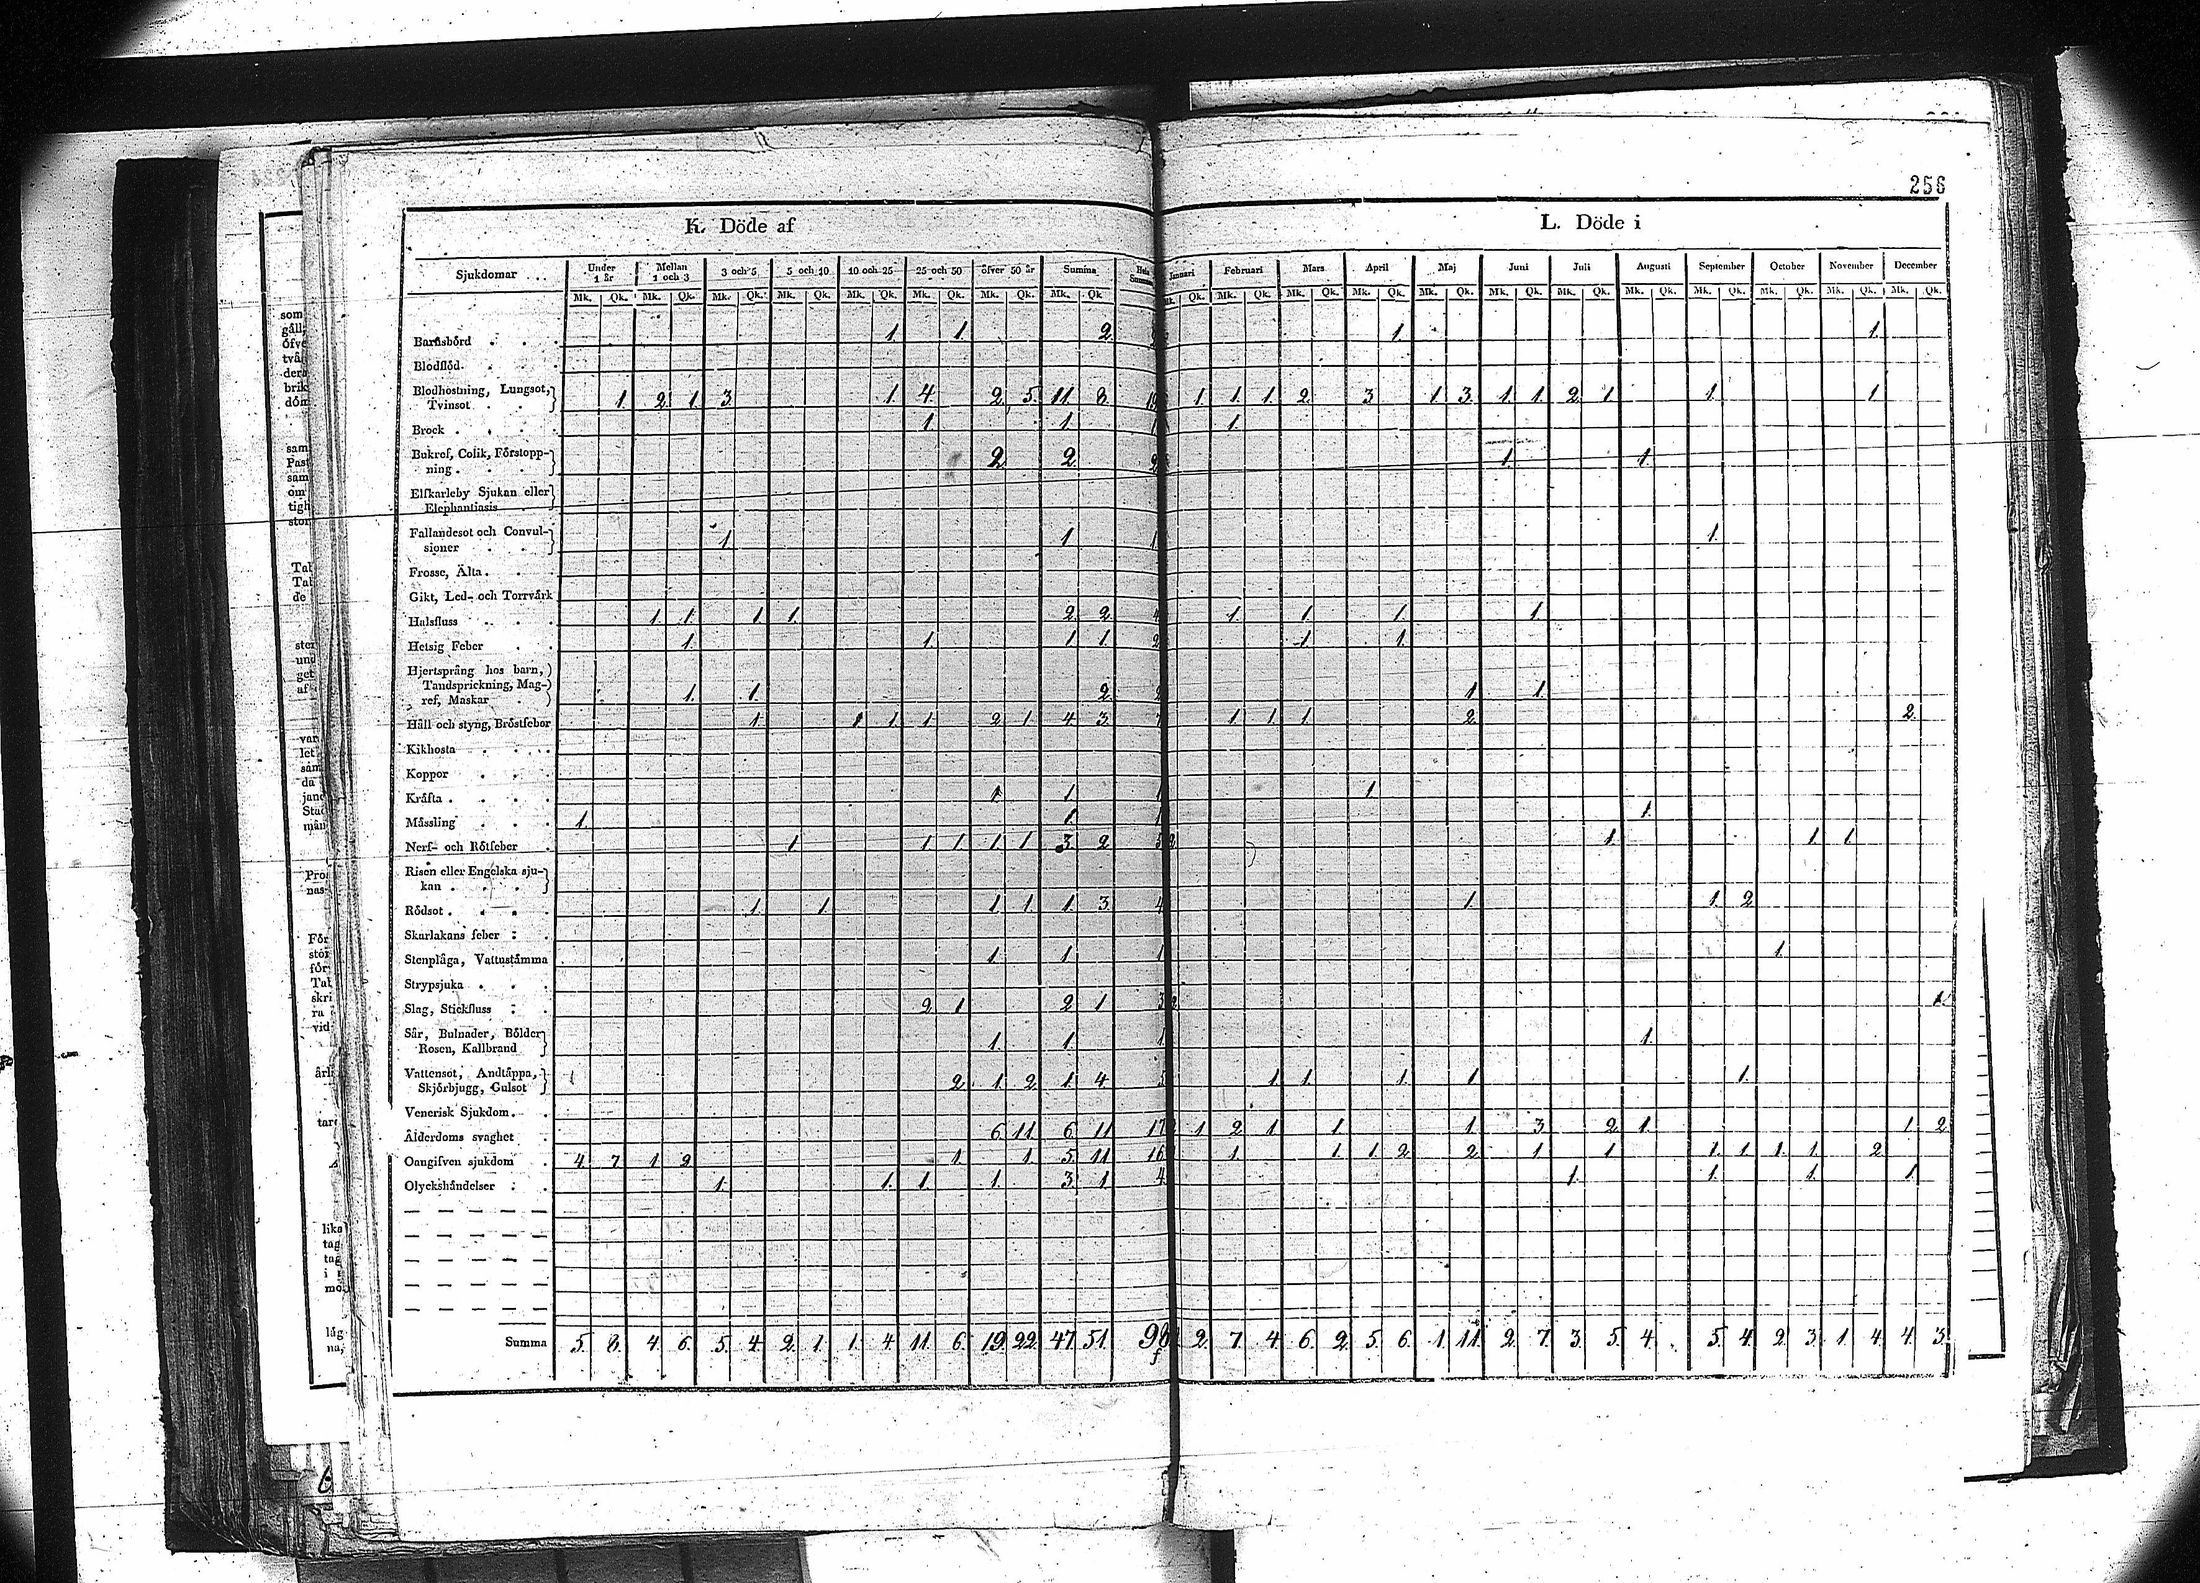 256
K. Döde af
L. Döde i
Sjukdomar Under 1 år Mellan 1 och 3 3 och 5 5 och 10 10 och 25 25 och 50 öfver 50 år Summa Hela Summan Januari Februari Mars April Maj Juni Juli Augusti September October November December
Mk. Qk. Mk. Qk. Mk. Qk. Mk. Qk. Mk. Qk. Mk. Qk. Mk. Qk. Mk. Qk. Mk. Qk. Mk. Qk. Mk. Qk. Mk. Qk. Mk. Qk. Mk. Qk. Mk. Qk. Mk. Qk. Mk. Qk. Mk. Qk. Mk. Qk. Mk. Qk.
Barnsbörd 1 1 2 1 1
Blodflöd
Blodhostning, Lungsot,
Tvinsot 1 2 1 3 1 4 2 5 11 8 1 1 1 2 3 1 3 1 1 2 1 1 1
Brock 1 1 1
Bukref, Colik, Förstopp-
ning 2 2 2 1 1
Elfkarleby Sjukan eller
Elephantiasis
Fallandesot och Convul-
sioner 1 1 1 1
Frosse, Älta
Gikt, Led- och Torrvärk
Halsfluss 1 1 1 1 2 2 4 1 1 1 1
Hetsig Feber 1 1 1 1 2 1 1
Hjertsprång hos barn,
Tandsprickning, Mag-
ref, Maskar 1 1 2 2 1 1
Håll och styng, Bröstfeber 1 1 1 1 2 1 4 3 7 1 1 1 2 2
Kikhosta
Koppor
Kräfta 1 1 1 1
Mässling 1 1 1 1
Nerf- och Rötfeber 1 1 1 1 1 3 2 5 2 1 1 1
Risen eller Engelska sju-
kan
Rödsot 1 1 1 1 1 3 4 1 1 2
Skarlakans feber
Stenplåga, Vattustämma 1 1 1 1
Strypsjuka
Slag, Stickfluss 2 1 2 1 3 2 1
Sår, Bulnader, Bölder
Rosen, Kallbrand 1 1 1 1
Vattensot, Andtäppa,
Skjörbjugg, Gulsot 2 1 2 1 4 5 1 1 1 1 1
Venerisk Sjukdom
Ålderdoms svaghet 6 11 6 11 17 2 1 2 1 1 1 3 2 1 1 2
Oangifven sjukdom 4 7 1 2 1 1 5 11 16 1 1 1 2 2 1 1 1 1 1 1 2
Olyckshändelser 1 1 1 1 3 1 4 1 1 1 1
Summa 5 8 4 6 5 4 2 1 1 4 11 6 19 22 47 51 98 2 7 4 6 2 5 6 1 11 2 7 3 5 4 5 4 2 3 1 4 4 3